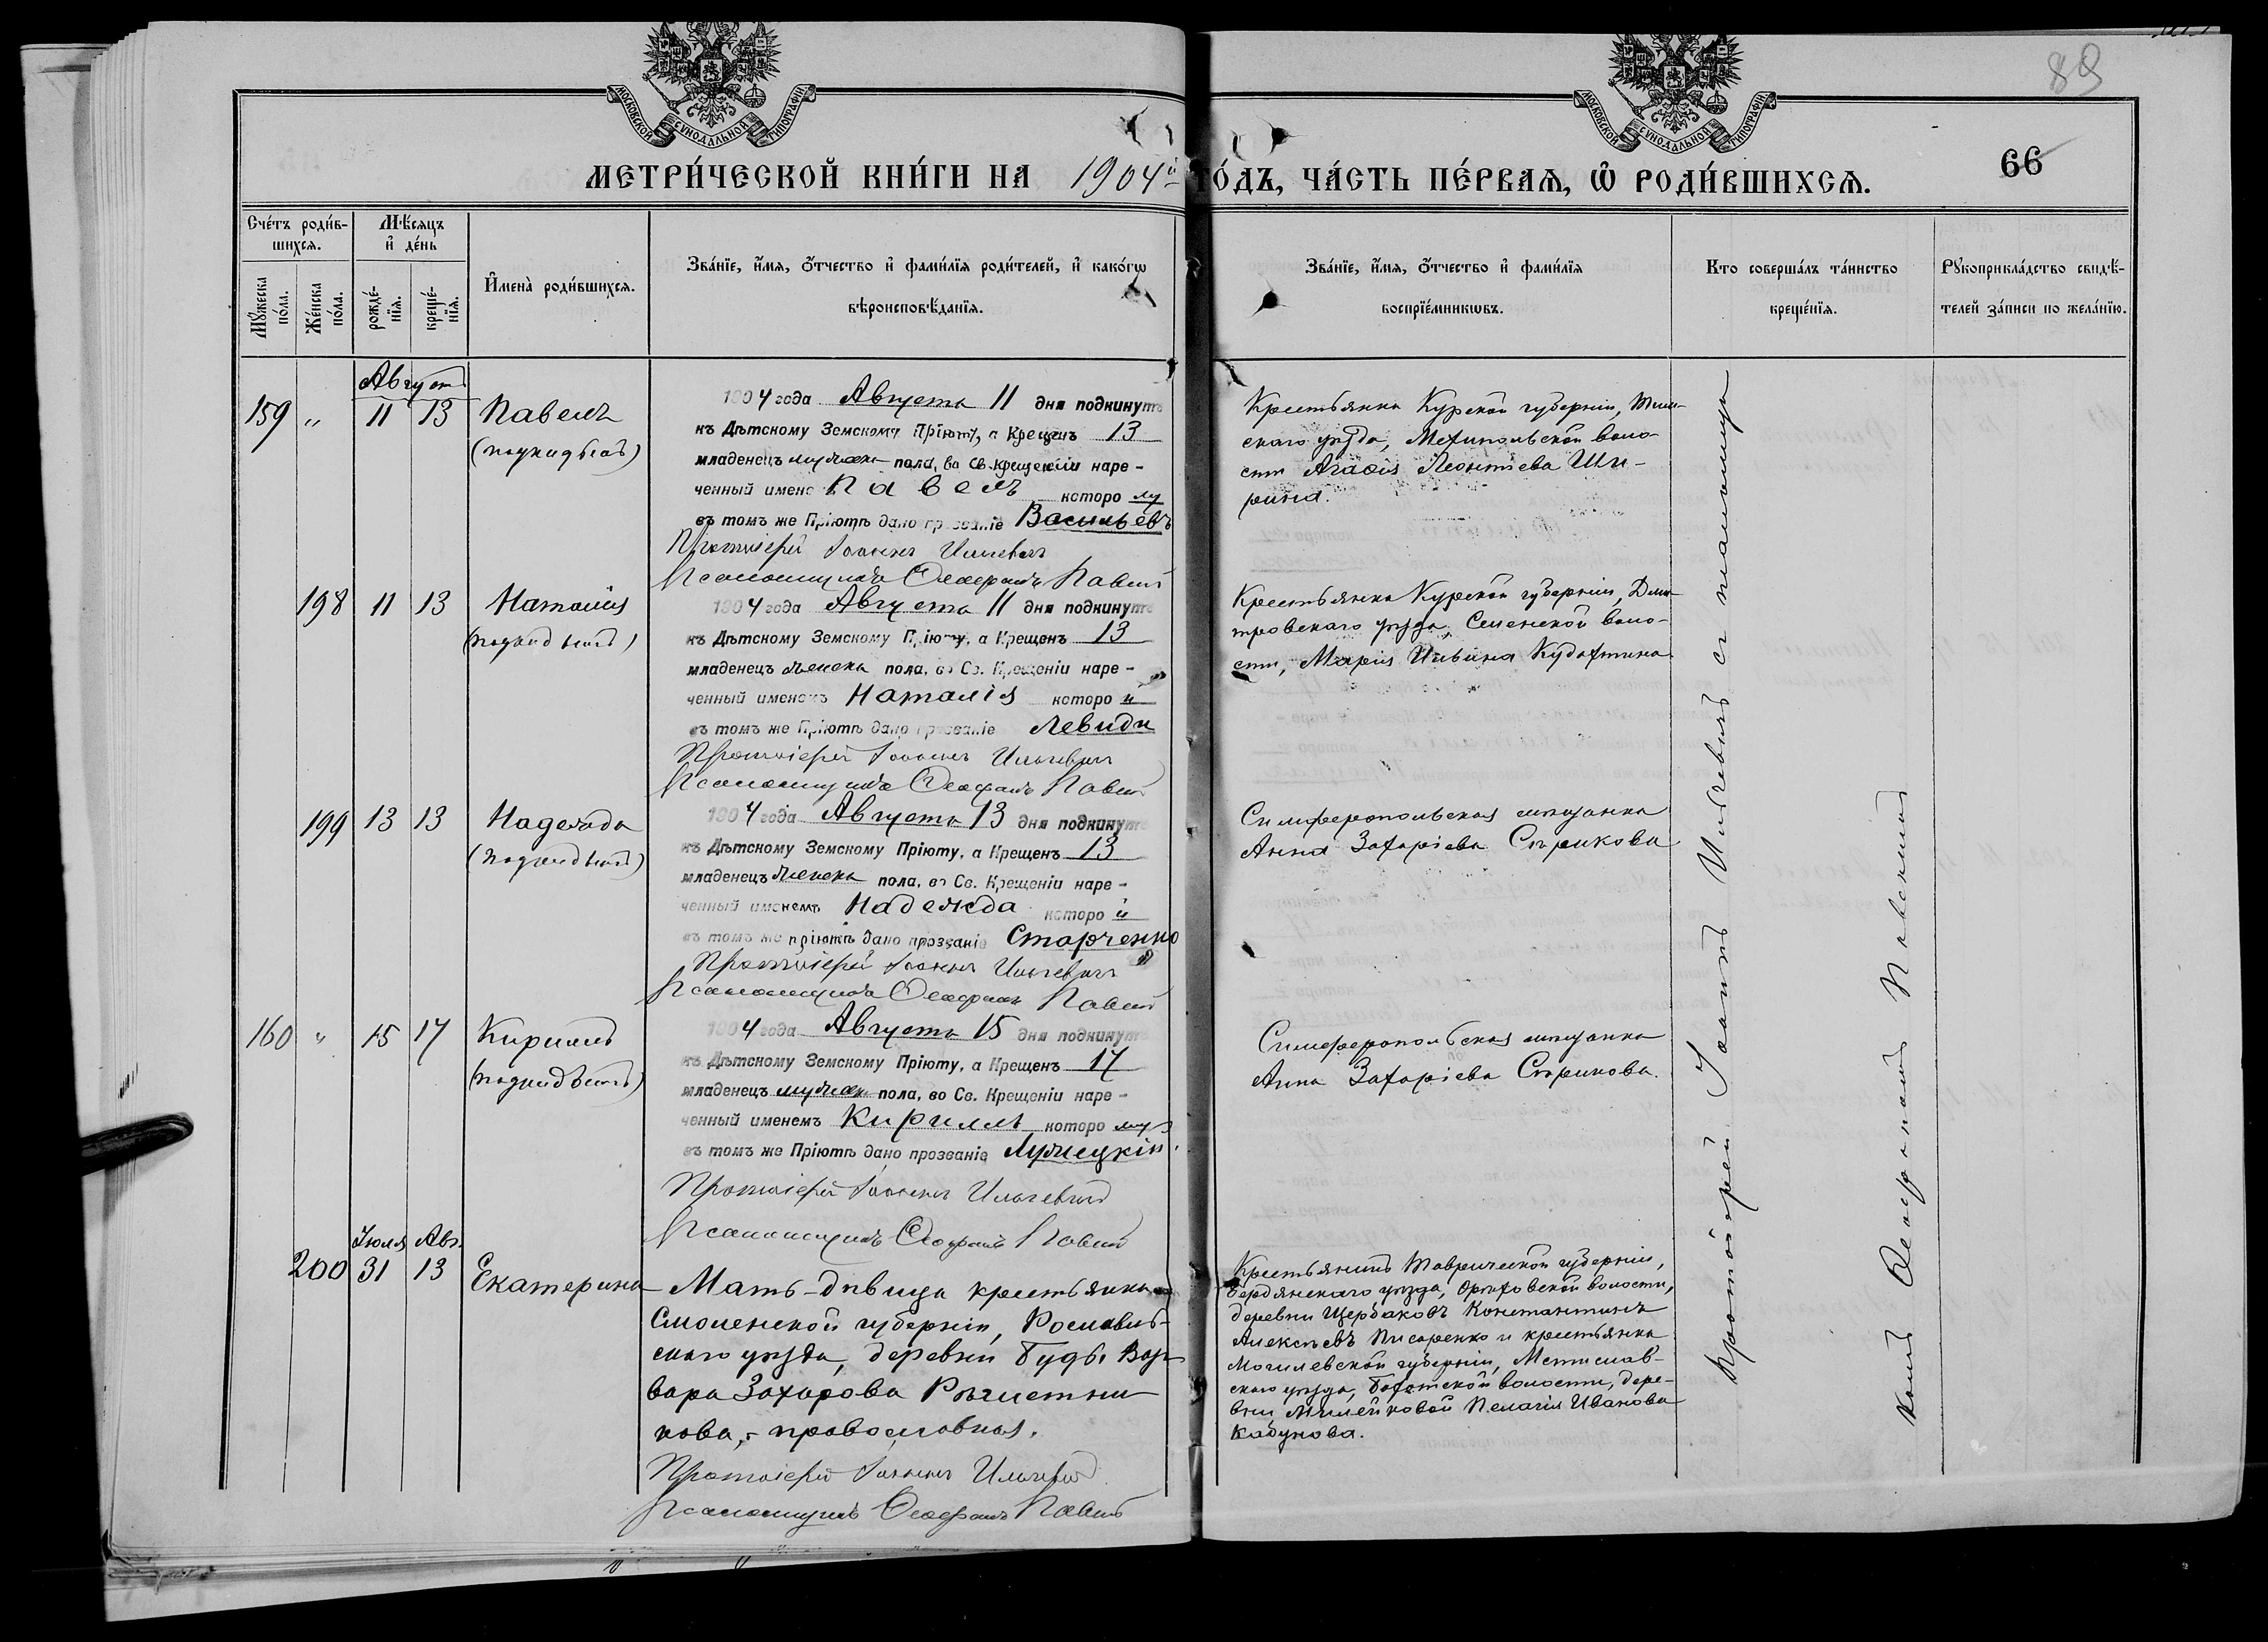 89
66
МОСКОВСКОЙ СѴНОДАЛЬНОЙ ТИПОГРАФІИ.
МОСКОВСКОЙ СѴНОДАЛЬНОЙ ТИПОГРАФІИ.
МЕТРИ́ЧЕСКОЙ КНИ́ГИ НА 1904й
О́ДЪ, ЧА́СТЬ ПЕ́РВАѦ, Ѽ РОДИ́ВШИХСѦ.
Сче́тъ роди́в-
шихсѧ.
Мѣ́сѧцъ
и҆ де́нь
Мꙋ́жеска
по́ла.
Же́нска
по́ла.
рожде́-
нїѧ.
креще́-
нїѧ.
И҆мена̀ роди́вшихсѧ.
Зва́нїе, и҆́мѧ, ѻ҆́тчество и҆ фами́лїѧ роди́телей, и҆ како́гѡ
вѣроисповѣ́данїѧ.
Зва́нїе, и҆́мѧ, ѻ҆́тчество и҆ фами́лїѧ
воспрїе́мникѡвъ.
Кто соверша́лъ та́инство
креще́нїѧ.
Рꙋкоприкла́дство свидѣ́-
телей за́писи по жела́нїю.
Августъ
159 " 11 13 Павелъ
(подкидышъ)
1904 года Августа 11 дня подкинутъ
къ Дѣтскому Земскому Пріюту, а Крещенъ 13
младенецъ мужска пола, во Св. Крещеніи наре-
ченный имене Павелъ которо му
въ томъ же Пріютѣ дано прозваніе Васильевъ
Протоіерей Іоаннъ Ильчевичъ
Псаломщикъ Ѳеофанъ
Крестьянка Курской губерніи, Тим-
скаго уѣзда, волo-
сти Агаѳія Леонтіева Ши-
рина.
198 11 13 Наталія
(подкидышъ)
1904 года Августа 11 дня подкинутъ
къ Дѣтскому Земскому Пріюту, а Крещенъ 13
младенецъ женска пола, во Св. Крещеніи наре-
ченный именемъ Наталія которо й
въ томъ же Пріютѣ дано прозваніе Левиди
Протоіерей Іоаннъ Ильчевичъ
Псаломщикъ Ѳеофанъ
Крестьянка Курской губерніи, Дми-
тровскаго уѣзда, воло-
сти, Марія Ильина
199 13 13 Надежда
(подкидышъ)
1904 года Августа 13 дня подкинутъ
къ Дѣтскому Земскому Пріюту, а Крещенъ 13
младенецъ женска пола, во Св. Крещеніи наре-
ченный именемъ Надежда которо й
въ томъ же пріютѣ дано прозваніе Старченко
Протоіерей Іоаннъ Ильчевичъ
Псаломщикъ Ѳеофанъ
Симферопольская мѣщанка
Анна Захаріева Сѣрикова
160 " 15 17 Кириллъ
(подкидышъ)
1904 года Августа 15 дня подкинутъ
къ Дѣтскому Земскому Пріюту, а Крещенъ 17
младенецъ мужска пола, во Св. Крещеніи наре-
ченный именемъ Кириллъ которо му
въ томъ же Пріютѣ дано прозваніе Лужецкій
Протоіерей Іоаннъ Ильчевичъ
Псаломщикъ Ѳеофанъ
Симферопольская мѣщанка
Анна Захаріева Сѣрикова.
Іюля Авг.
200 31 13 Екатерина
Мать-дѣвица крестьянка
Смоленской губерніи, Рославль-
скаго уѣзда, деревни Буды Вар-
вара Захарова Рѣшетни
кова, - православная.
Протоіерей Іоаннъ Ильчевичъ
Псаломщикъ Ѳеофанъ
Крестьянинъ Таврической губерніи,
Бердянскаго уѣзда, Орѣховской волости,
деревни Щербаковъ Константинъ
Алексѣевъ Писаренко и крестьянка
Могилевской губерніи, Мстислав-
скаго уѣзда, волости, дере-
вни Милейковой Пелагія Иванова
Кабунова.
Протоіерей Іоаннъ Ильчевичъ съ псаломщи
комъ Ѳеофаномъ